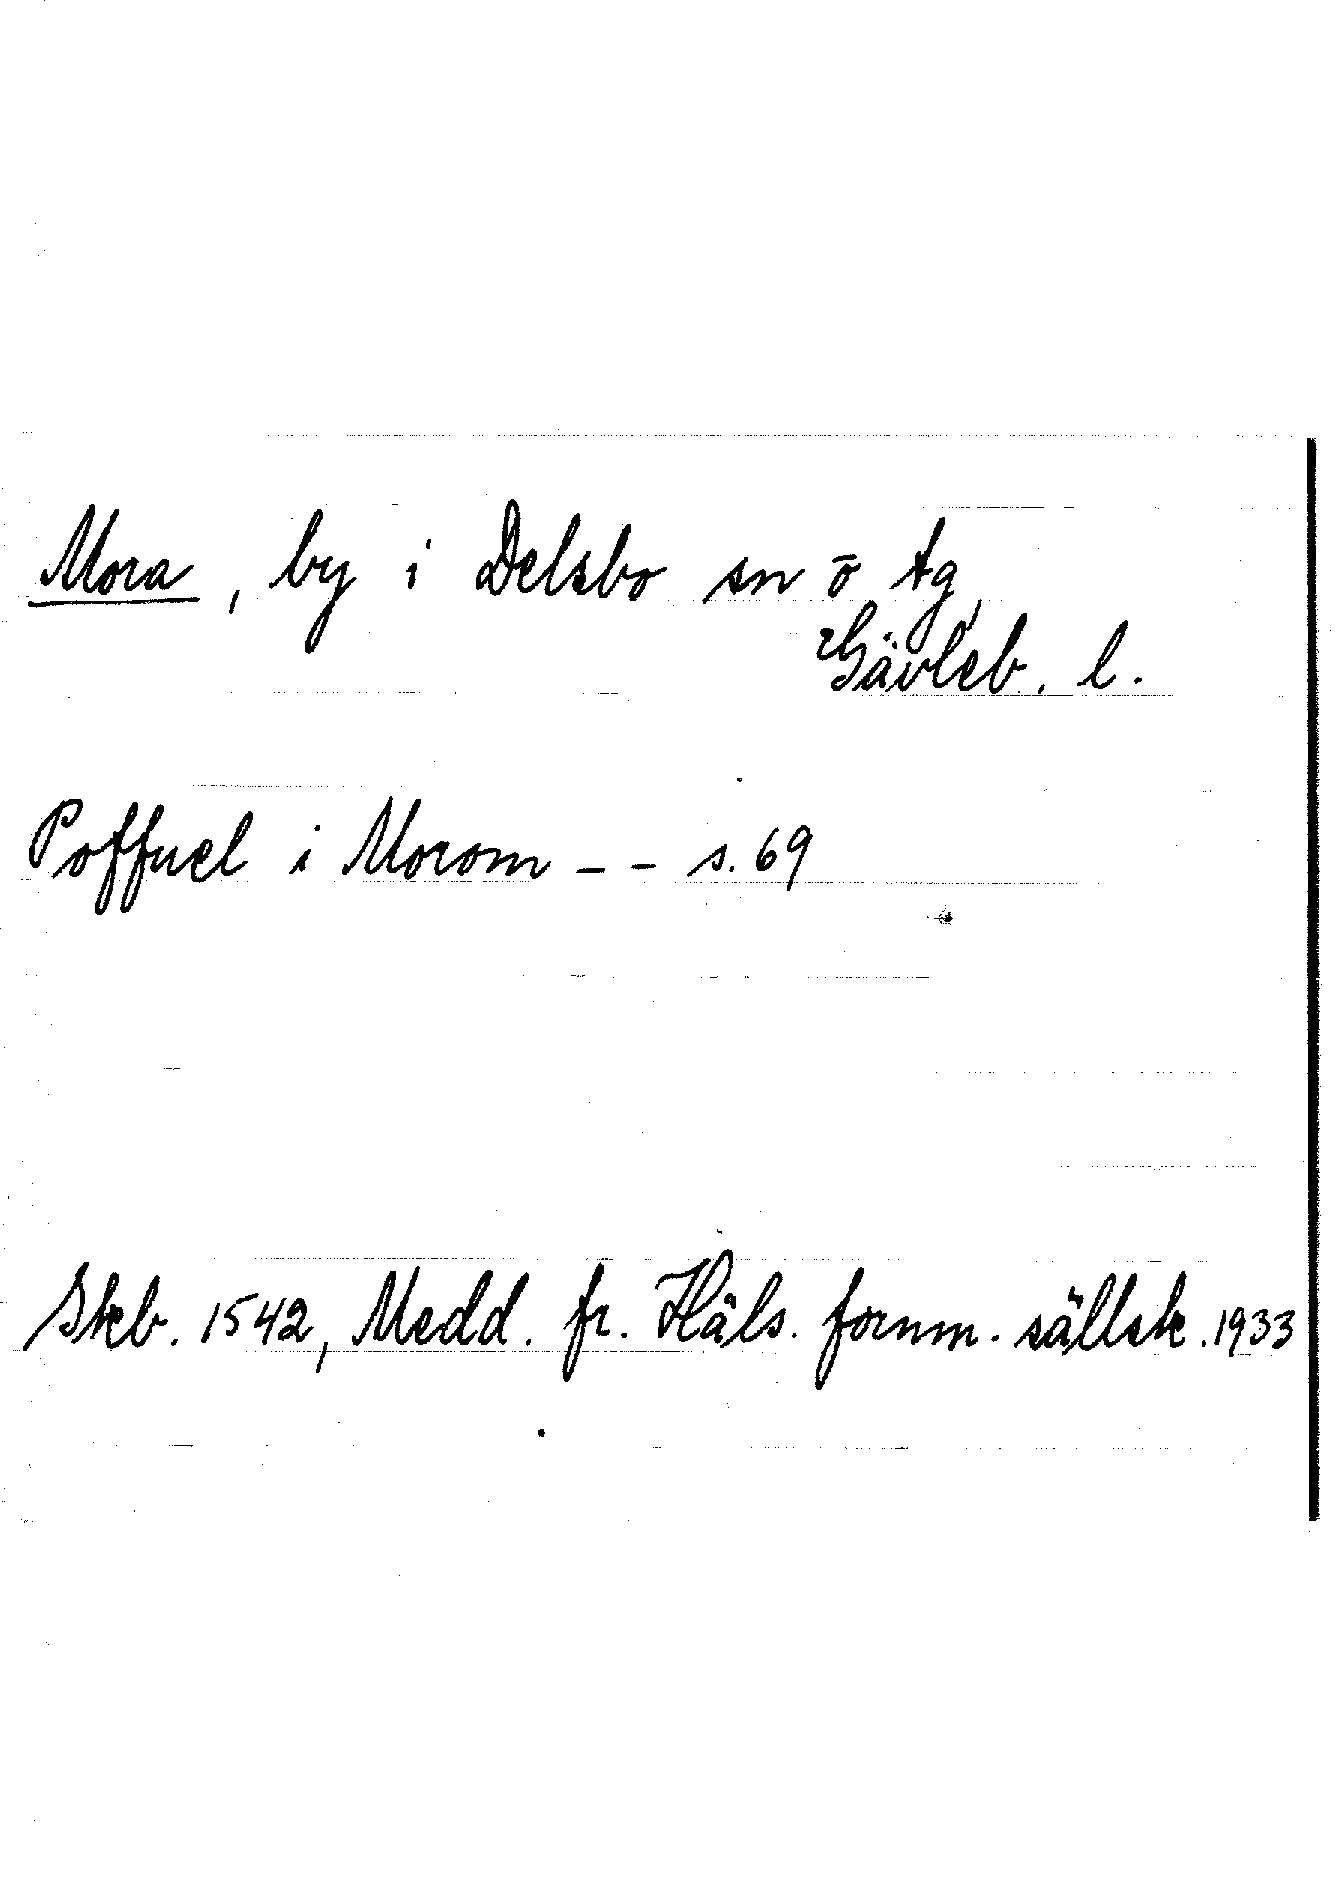 Mora, by i Delsbo sn o tg,
Gävleb. l.
Poffuel i Morom - - s. 69
Skb. 1542, Medd. fr. Häls. fornm. sällsk. 1933